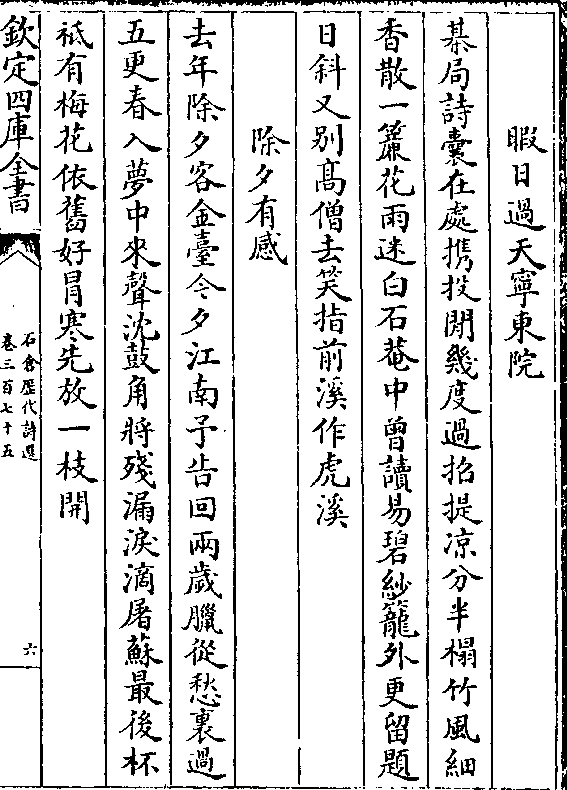 暇日過天寧東院
棊局詩囊在處携投閒幾度過招提凉分半榻竹風細
香散一簾花雨迷白石菴中曾讀易碧紗籠外更留題
日斜又别髙僧去笑指前溪作虎溪
除夕有感
去年除夕客金臺今夕江南予告回兩歲臘從愁裏過
五更春入夢中來聲沈鼓角將殘漏淚滴屠蘇最後杯
祗有梅花依舊好冒寒先放一枝開
欽定四庫全書
石倉歴代詩選
卷三百七十五
六